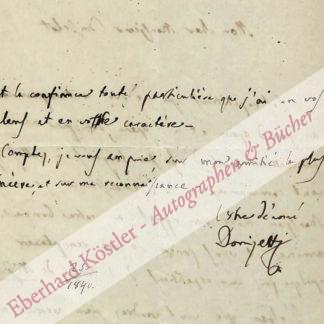 t la confiance toute particulière que j'ai en vos
lens et en votre caractère_
Comptez, je vous en prie sur mon amitié la plus
sincère et sur ma reconnaissance
Votre dévoué
Donizetti
1840.
Eberhard Köstler - Autographen & Bücher